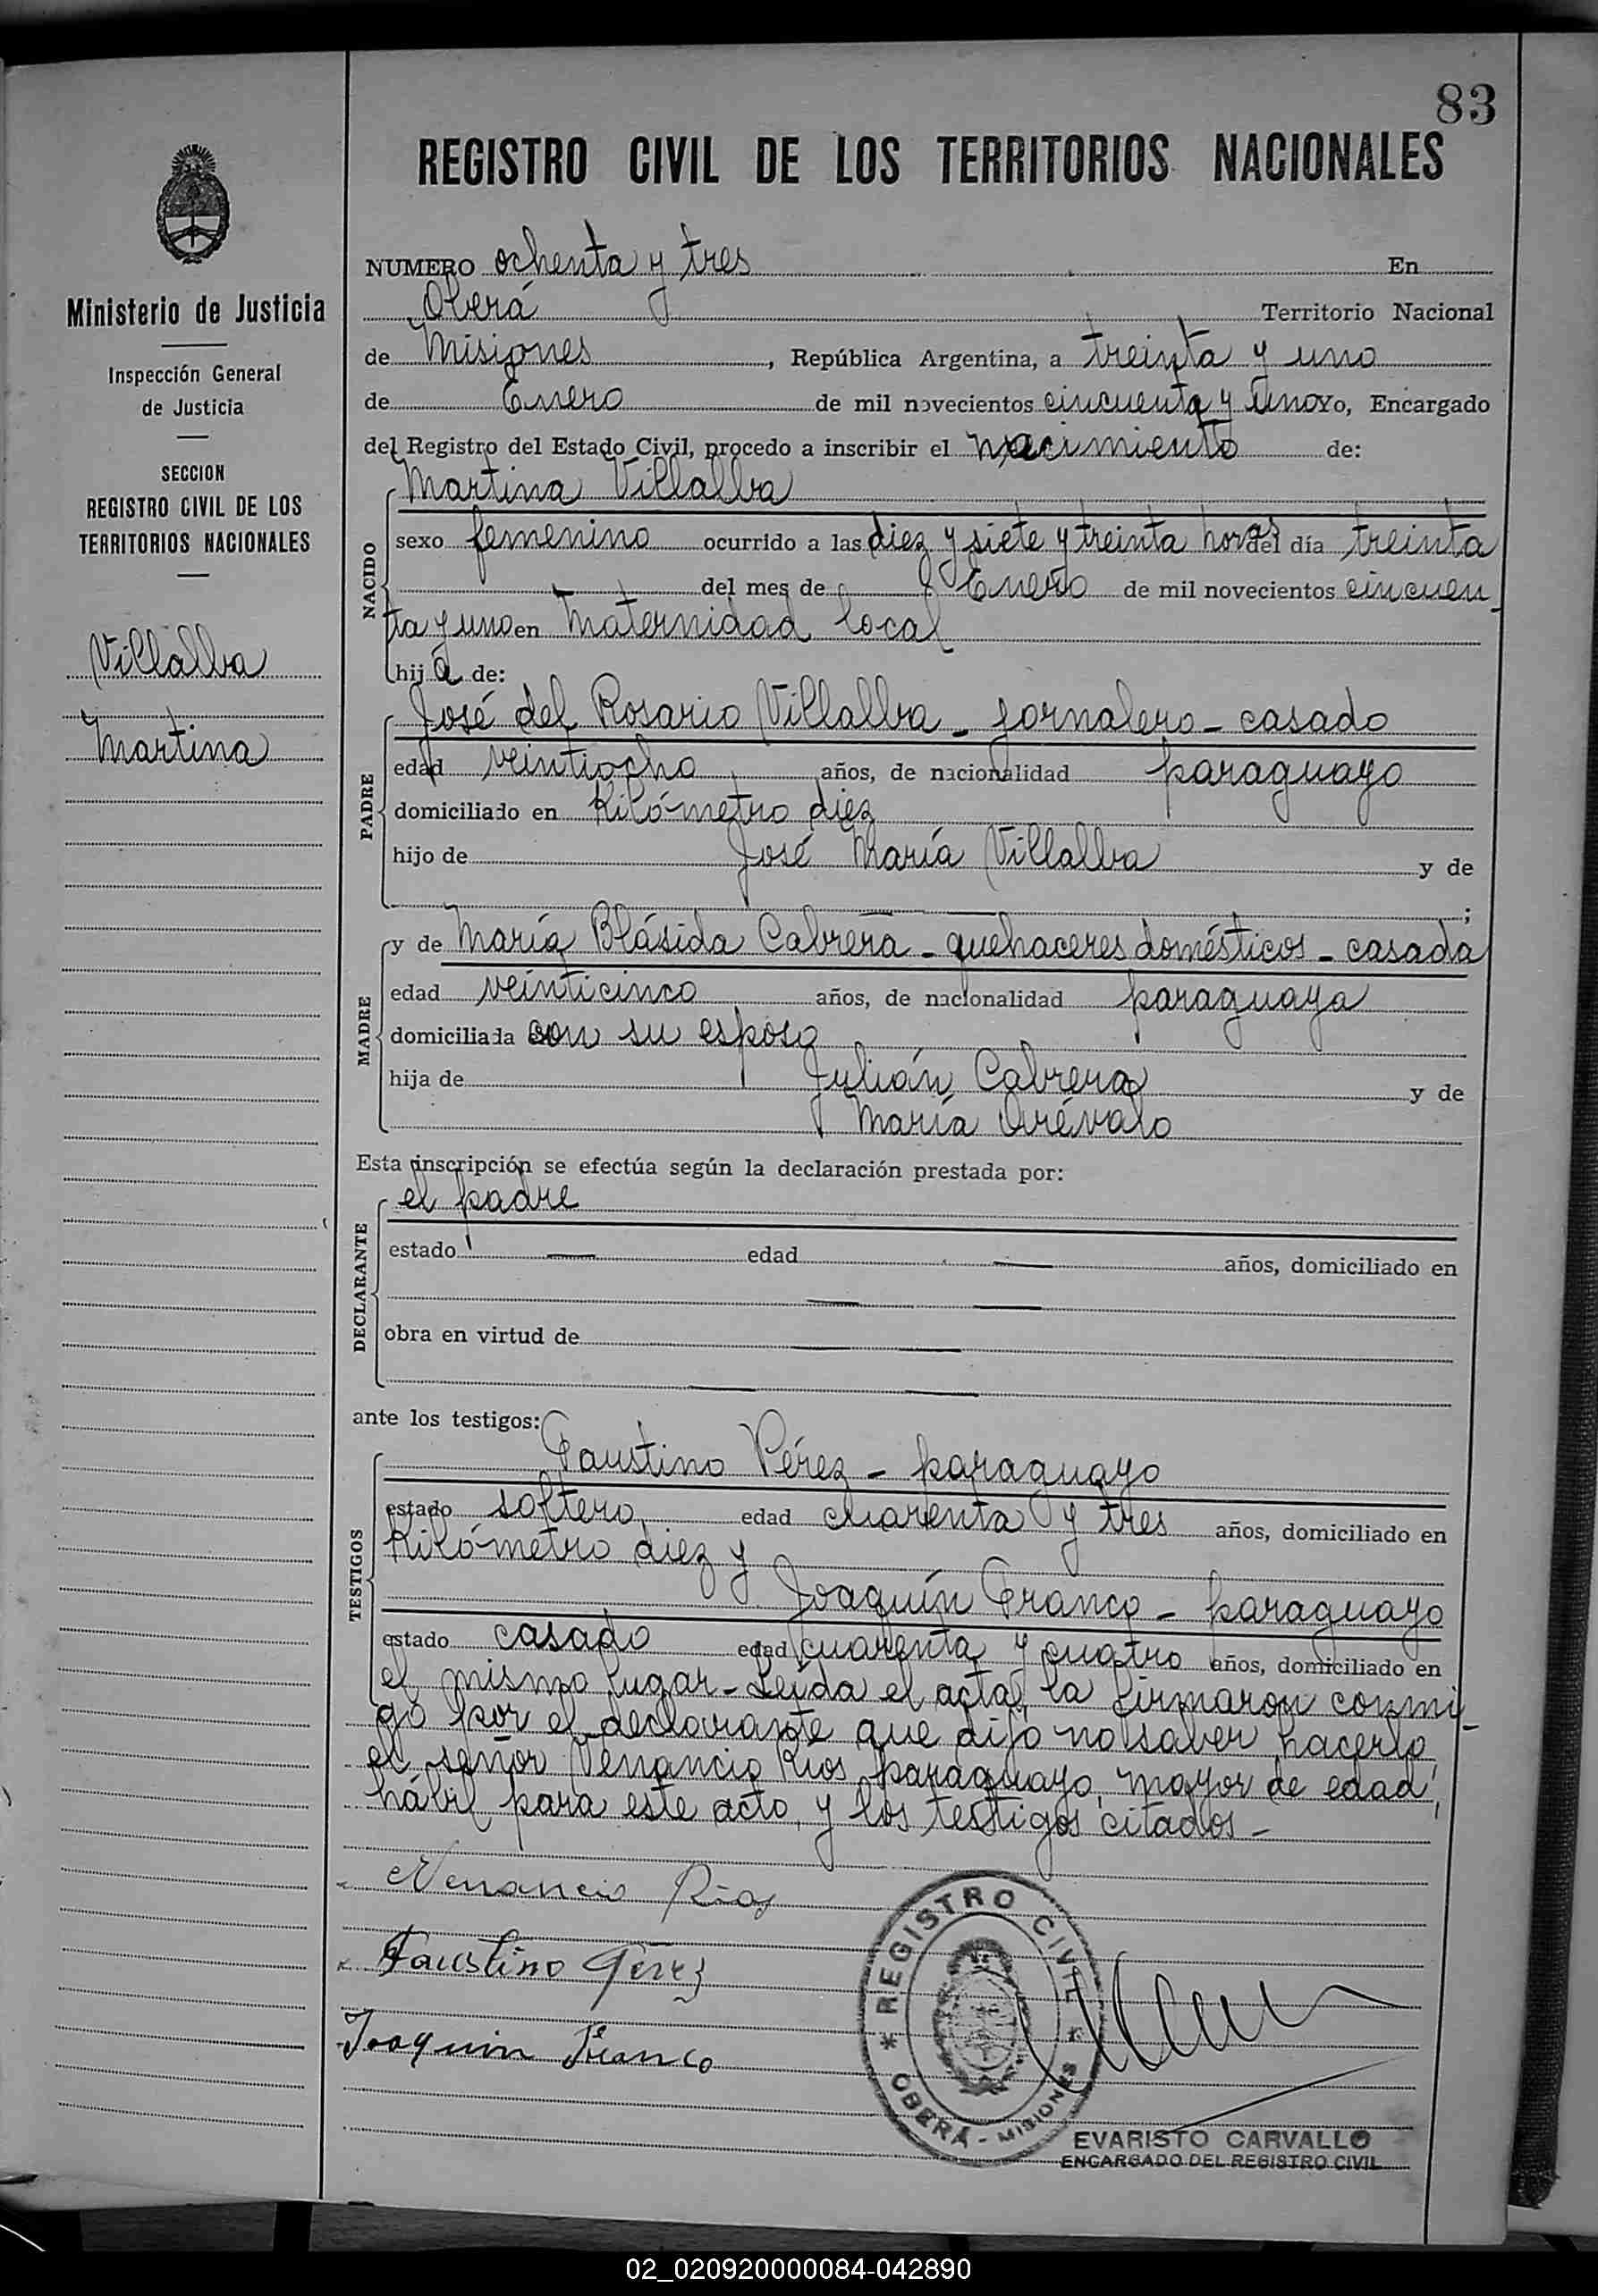 83
REGISTRO CIVIL DE LOS TERRITORIOS NACIONALES
Ministerio de Justicia
Inspección General
de Justicia
SECCION
REGISTRO CIVIL DE LOS
TERRITORIOS NACIONALES
Villalba
Martina
NUMERO ochenta y tres En
Oberá Territorio Nacional
de Misiones, República Argentina, a treinta y uno
de Enero de mil novecientos cincuenta y uno Yo, Encargado
del Registro del Estado Civil, procedo a inscribir el nacimiento de:
NACIDO
Martina Villalba
sexo femenino ocurrido a las diez y siete y treinta horas del día treinta
del mes de Enero de mil novecientos cincuen-
ta y uno en Maternidad local
hija de:
PADRE
José del Rosario Villalba - jornalero - casado
edad veintiocho años, de nacionalidad paraguayo
domiciliado en Kilómetro diez
hijo de José María Villalba y de
;
MADRE
y de María Blásida Cabrera - quehaceres domésticos - casada
edad veinticinco años, de nacionalidad paraguaya
domiciliada con su esposo
hija de Julián Cabrera y de
María Arévalo
Esta inscripción se efectúa según la declaración prestada por:
DECLARANTE
el padre
estado — edad — años, domiciliado en
— —
obra en virtud de — —
— —
ante los testigos:
TESTIGOS
Faustino Pérez - paraguayo
estado soltero edad cuarenta y tres años, domiciliado en
Kilómetro diez y
Joaquín Franco - paraguayo
estado casado edad cuarenta y cuatro años, domiciliado en
el mismo lugar - Leída el acta, la firmaron conmi-
go por el declarante que dijo no saber hacerlo
el señor Venancio Ríos paraguayo, mayor de edad,
hábil para este acto, y los testigos citados -
Venancio Rios
Faustino Perez
Joaquin Franco
* REGISTRO CIVIL *
OBERÁ - MISIONES
EVARISTO CARVALLO
ENCARGADO DEL REGISTRO CIVIL
02_020920000084-042890